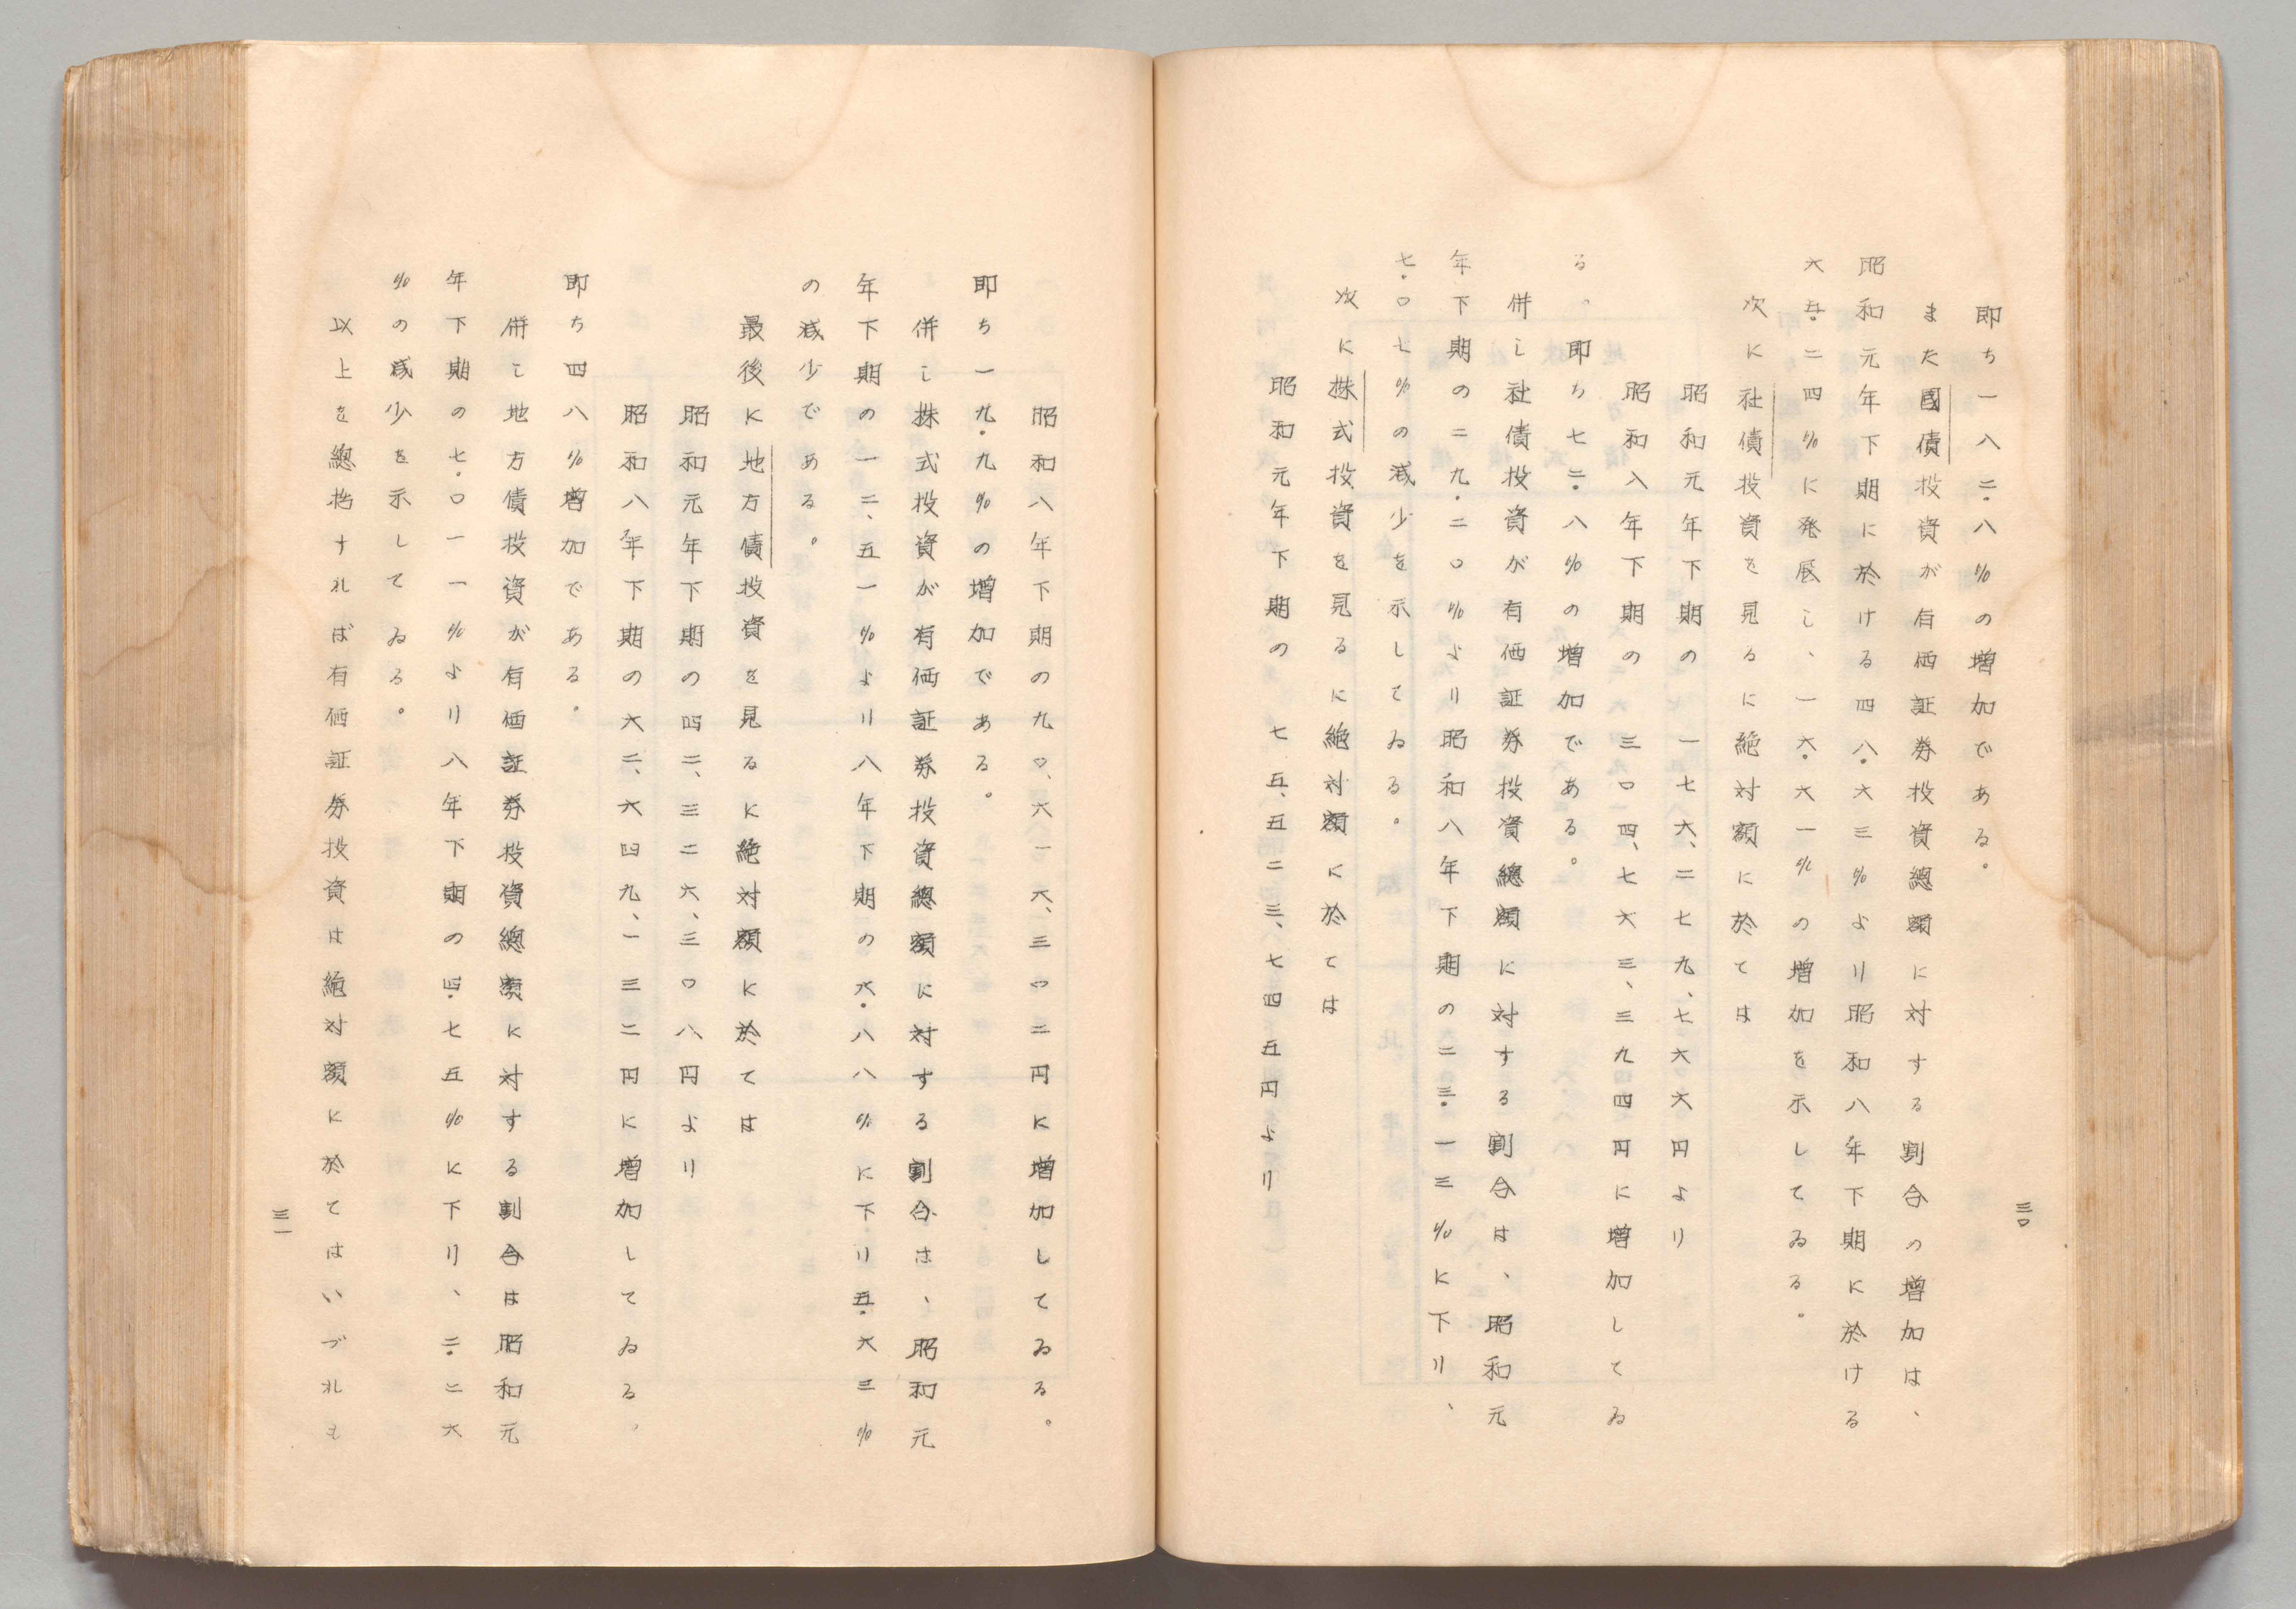 即ち一八二・八%の増加である。
また國債投資が有価証券投資總額に対する割合の増加は、
昭和元年下期に於ける四八・六三%より昭和八年下期に於ける
六五・二四%に発展し、一六・六一%の増加を示してゐる。
次に社債投資を見るに絶対額に於ては
昭和元年下期の一七六、二七九、七六六円より
昭和八年下期の三〇四、七六三、三九四円に増加してゐ
る。即ち七二・八%の増加である。
併し社債投資が有価証券投資總額に対する割合は、昭和元
年下期の二九・二〇%より昭和八年下期の二三・一三%に下り、
七・〇七%の減少を示してゐる。
次に株式投資を見るに絶対額に於ては
昭和元年下期の七五、五二三、七四五円より
三〇
昭和八年下期の九〇、六一六、三〇二円に増加してゐる。
即ち一九・九%の増加である。
併し株式投資が有価証券投資總額に対する割合は、昭和元
年下期の一二、五一%より八年下期の六・八八%に下り五・六三%
の減少である。
最後に地方債投資を見るに絶対額に於ては
昭和元年下期の四二、三二六、三〇八円より
昭和八年下期の六二、六四九、一三二円に増加してゐる。
即ち四八%増加である。
併し地方債投資が有価証券投資總額に対する割合は昭和元
年下期の七・〇一一%より八年下期の四・七五%に下り、二・二六
%の減少を示してゐる。
以上を總括すれば有価証券投資は絶対額に於てはいづれも
三一